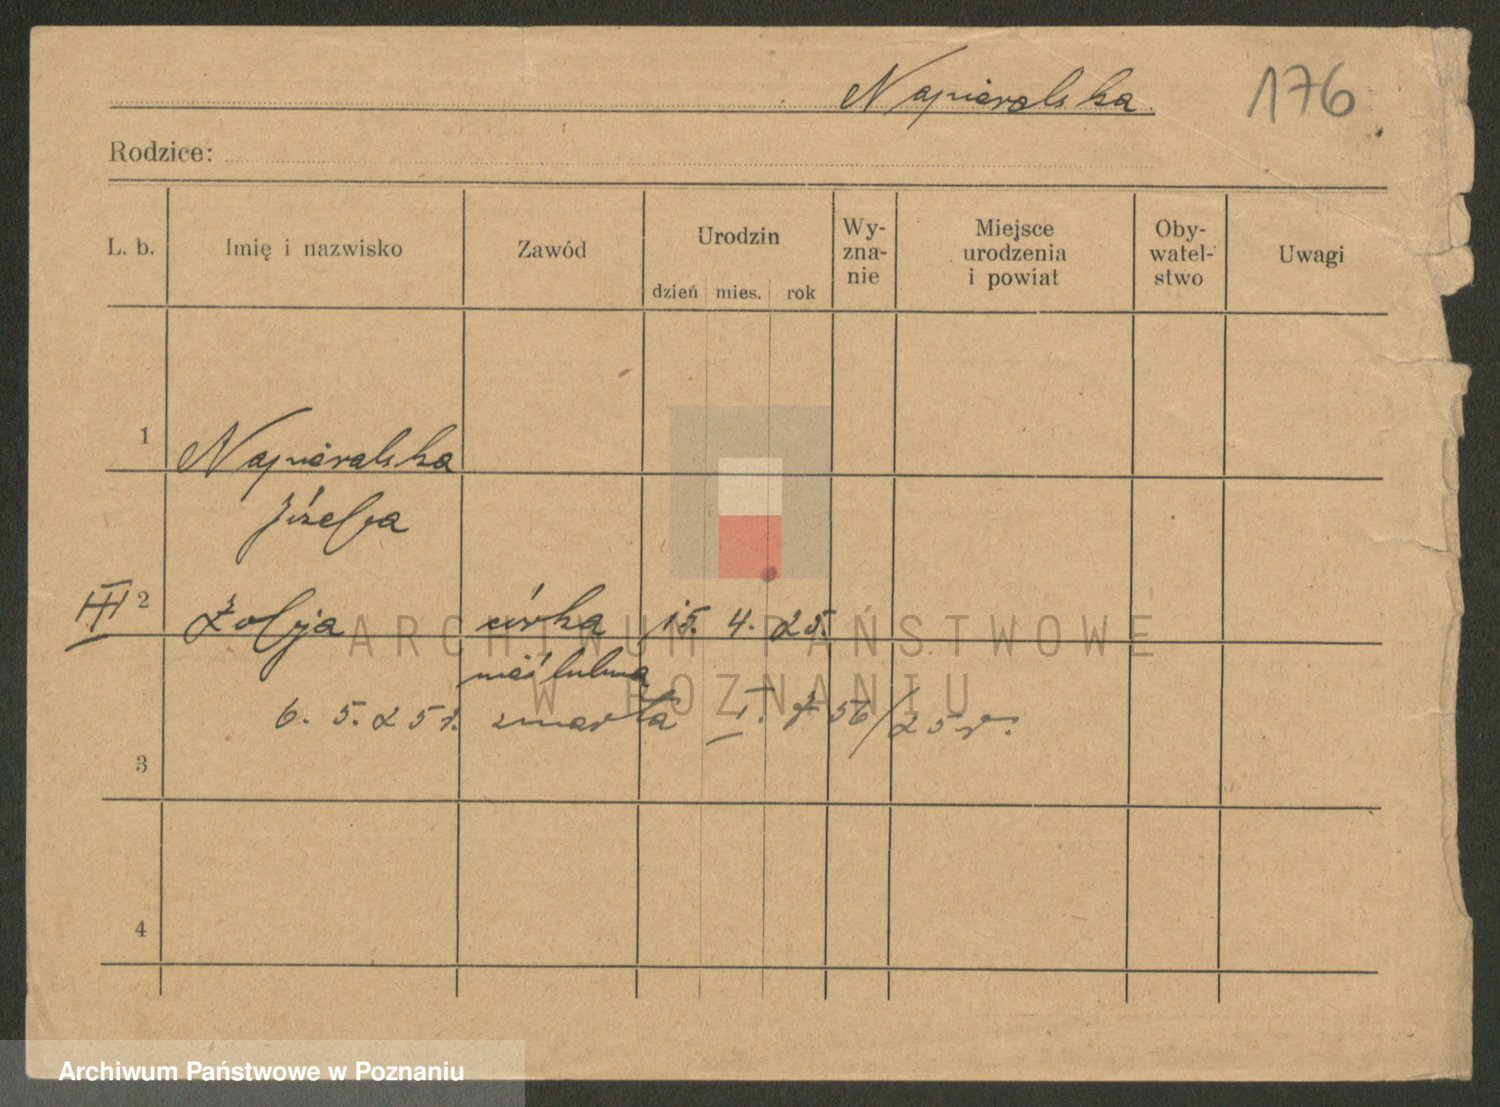 Napieralska 176
Rodzice:
L. b. Imię i nazwisko Zawód Urodzin dzień mies. rok Wy-zna-nie Miejsce urodzenia i powiat Oby-watel-stwo Uwagi
1 Napieralska
Józefa
III 2 Zofja córka 15. 4. 25.
nieślubna
6. 5. 25 r. zmarła I. 56/25 r.
3
4
ARCHIWUM PAŃSTWOWE
W POZNANIU
Archiwum Państwowe w Poznaniu